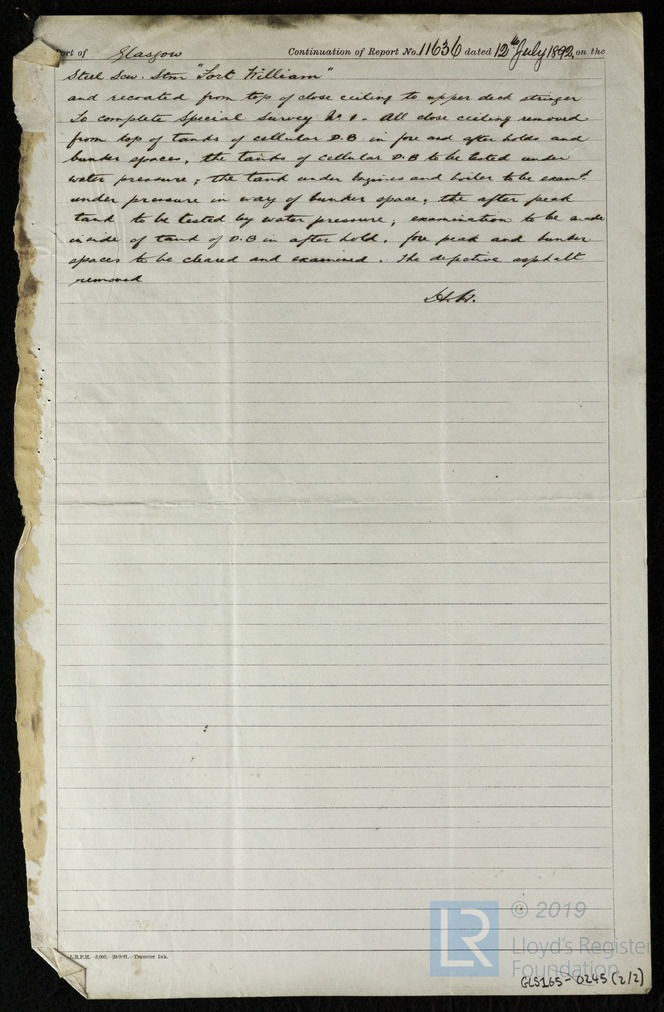 Port of Glasgow Continuation of Report No. 11636 dated 12th July 1892, on the
Steel Scw. Stm "Fort William"
and recoated from top of close ceiling to upper deck stringer
To complete Special Survey No. 1. All close ceiling removed
from top of tanks of cellular D.B in fore and after holds and
bunker spaces, the tanks of cellular D.B to be tested under
water pressure; the tank under Engines and boiler to be examd
under pressure in way of bunker space, the after peak
tank to be tested by water pressure; examination to be made
inside of tank of D.B in after hold. fore peak and bunker
spaces to be cleared and examined. The defective asphalt
removed
L.R.P.H.—5,000.—Transfer Ink.
LR
© 2019
Lloyd's Register
Foundation
GLS165-0245 (2/2)